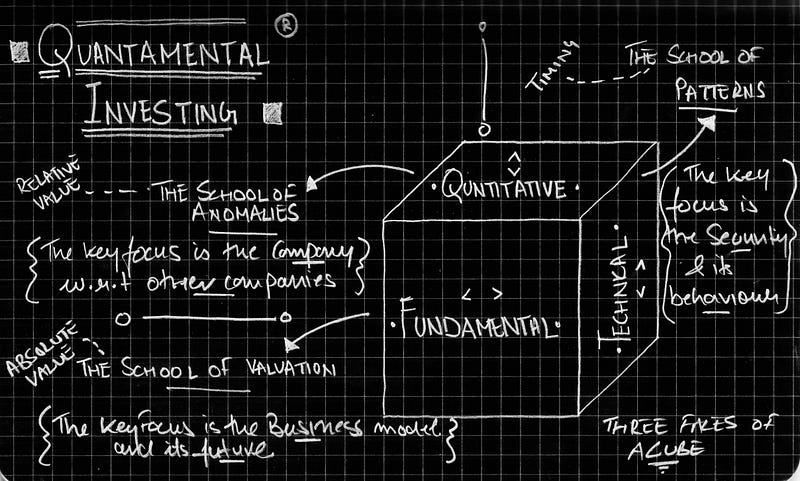 QUANTAMENTAL ®
INVESTING
RELATIVE
VALUE
THE SCHOOL OF
ANOMALIES
{The key focus is the Company
w.r.t other companies}
ABSOLUTE
VALUE
THE SCHOOL OF VALUATION
{The key focus is the Business model
and its future}
TIMING
THE SCHOOL OF
PATTERNS
{The key
focus is
the Security
& its
behaviour}
• QUNTITATIVE •
< >
FUNDAMENTAL •
• TECHNICAL •
THREE FACES OF
A CUBE